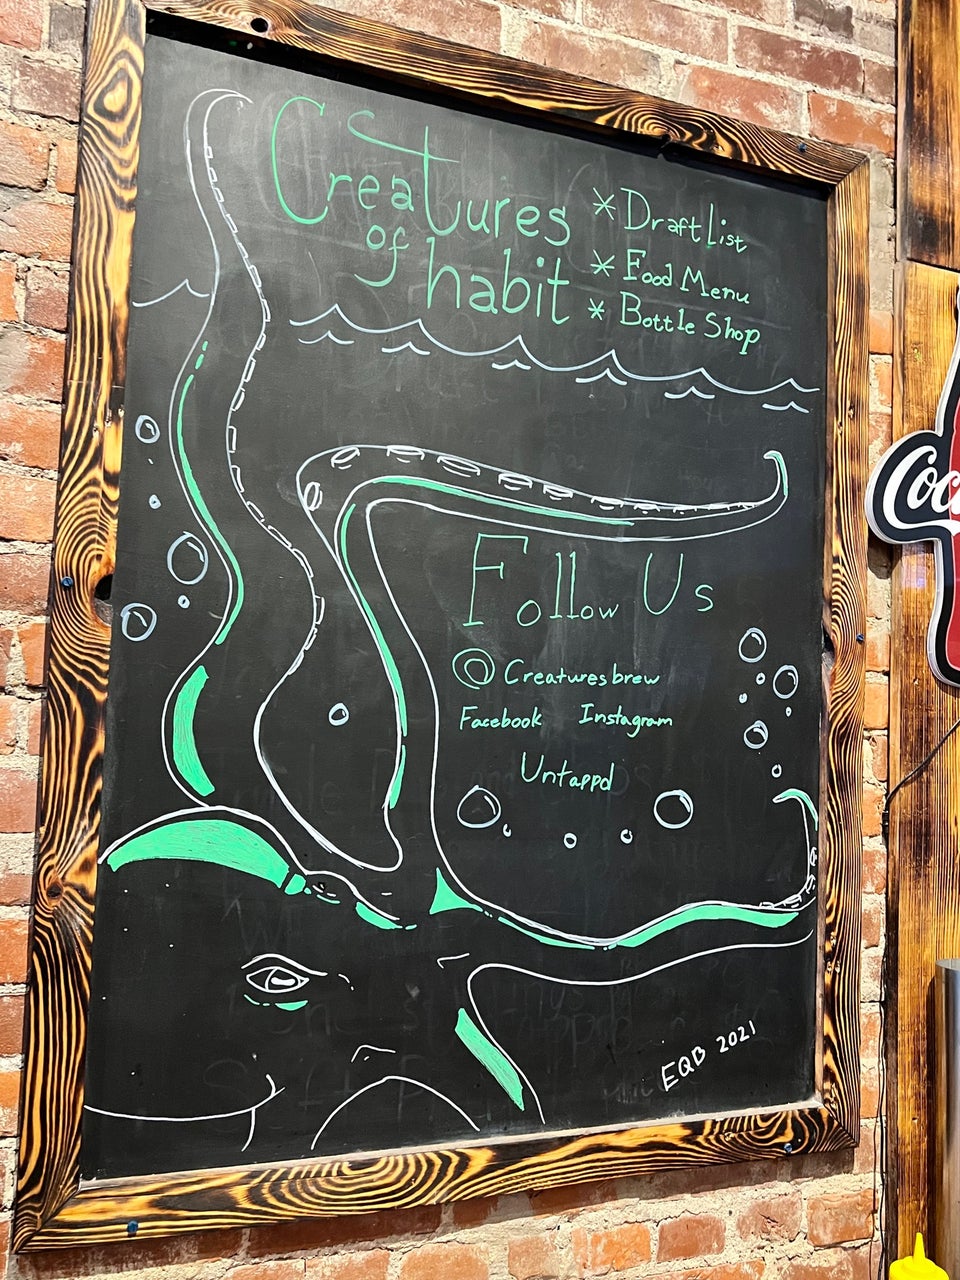 Creatures
of habit
* Draft List
* Food Menu
* Bottle Shop
Follow Us
@ Creaturesbrew
Facebook Instagram
Untappd
EQB 2021
Coc